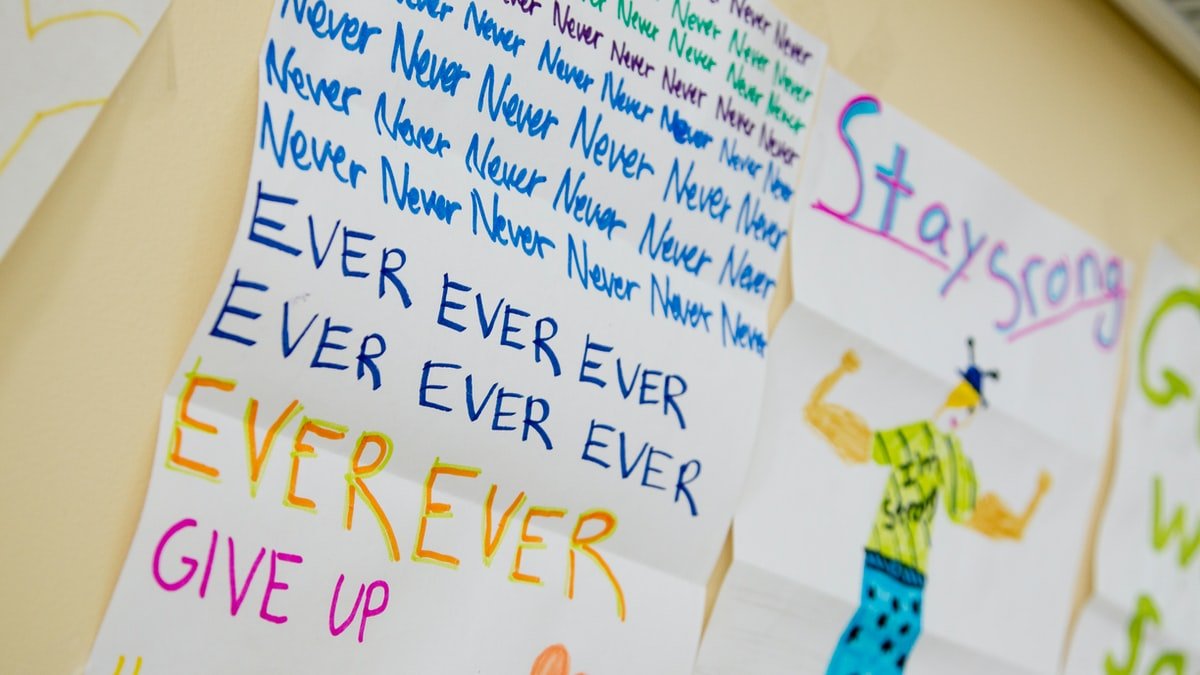 Never Never
Never Never Never
Never Never Never Never
Never Never Never Never Never
Never Never Never Never Never Never
Never Never Never Never Never Never
Never Never Never Never Never Never
Never Never Never Never Never Never
EVER EVER EVER
EVER EVER EVER
EVER EVER
GIVE UP
Stay Srong
I'm
strong
G
w